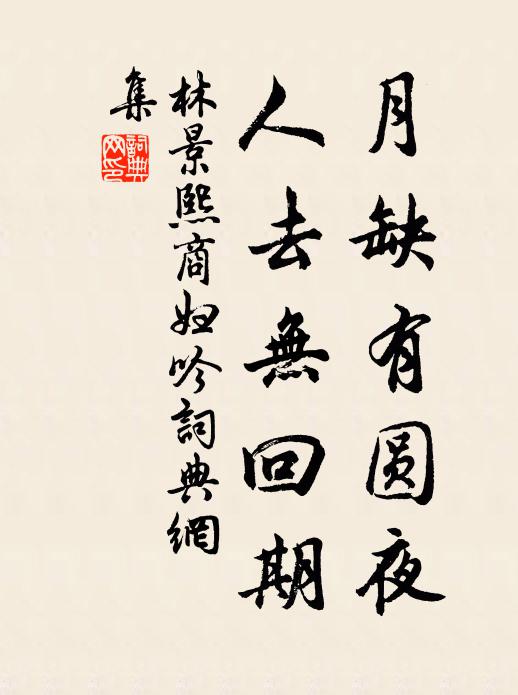 月缺有圆夜
人去無回期
林景熙商妇吟詞典網
集
詞典网印